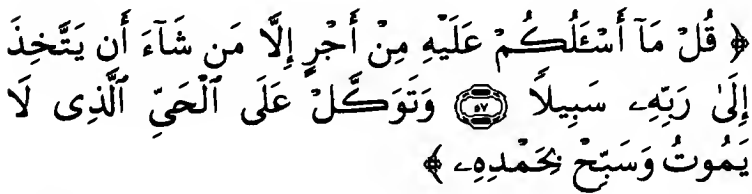 ﴿ قُلْ مَآ أَسْـَٔلُكُمْ عَلَيْهِ مِنْ أَجْرٍ إِلَّا مَن شَآءَ أَن يَتَّخِذَ
إِلَىٰ رَبِّهِۦ سَبِيلًا ۝٥٧ وَتَوَكَّلْ عَلَى ٱلْحَىِّ ٱلَّذِى لَا
يَمُوتُ وَسَبِّحْ بِحَمْدِهِۦ ﴾